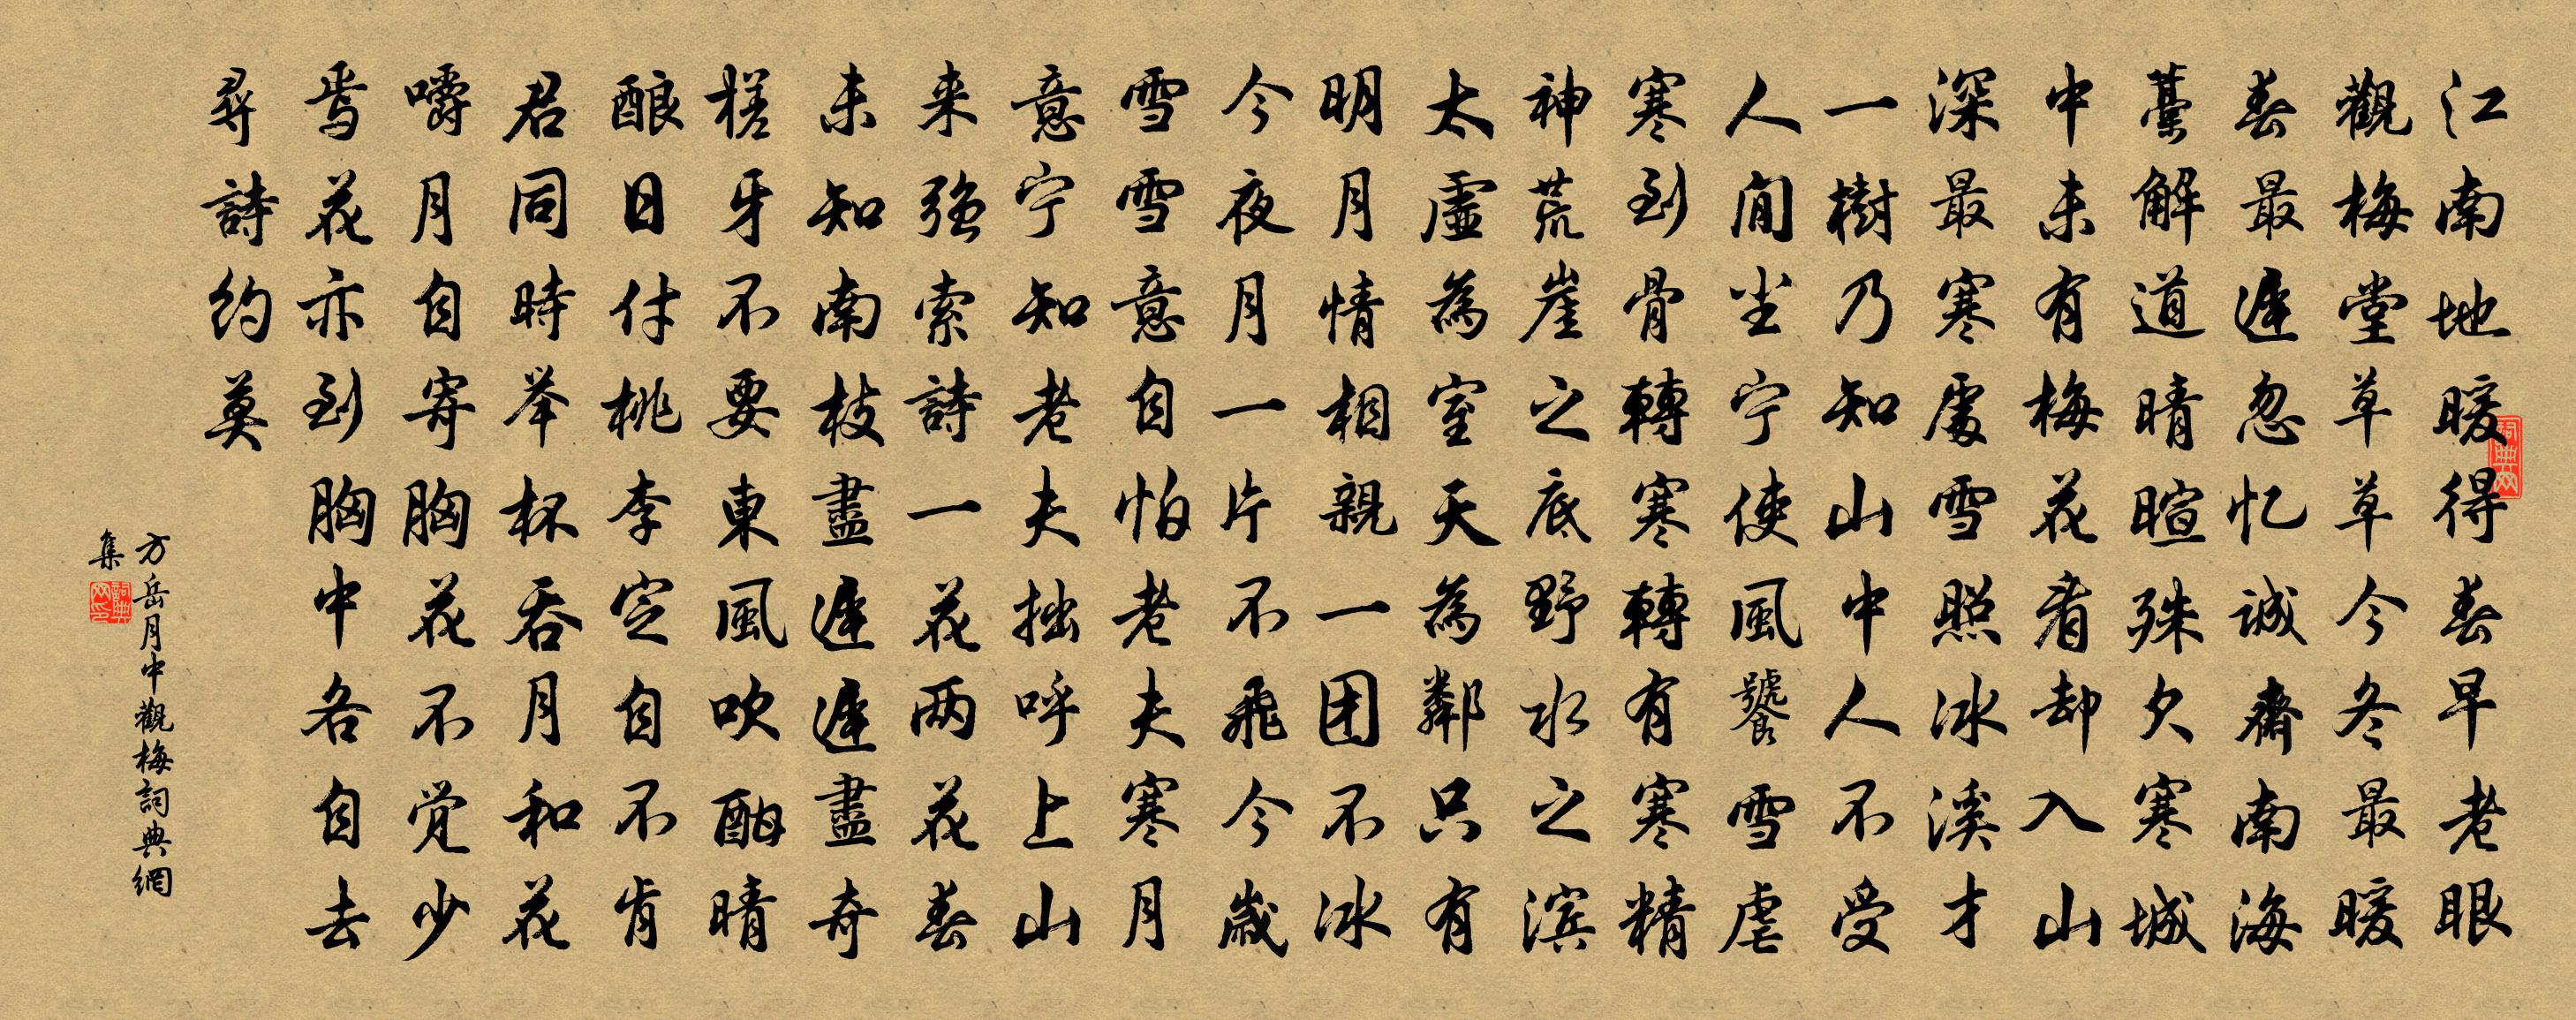 江南地暖得春早老眼
觀梅堂草草今冬最暖
春最遲忽忆诚齋南海
藁解道晴暄殊欠寒城
中未有梅花看却入山
深最寒處雪照冰溪才
一樹乃知山中人不受
人間尘宁使風饕雪虐
寒到骨轉寒轉有寒精
神荒崖之底野水之滨
太虛為室天為鄰只有
明月情相親一团不冰
今夜月一片不飛今歲
雪雪意自怕老夫寒月
意宁知老夫拙呼上山
来强索詩一花两花春
未知南枝盡遲遲盡奇
槎牙不要東風吹酣晴
酿日付桃李定自不肯
君同時举杯吞月和花
嚼月自寄胸花不觉少
焉花亦到胸中各自去
尋詩約莫
方岳月中觀梅詞典網
集
詞典网
詞典网印